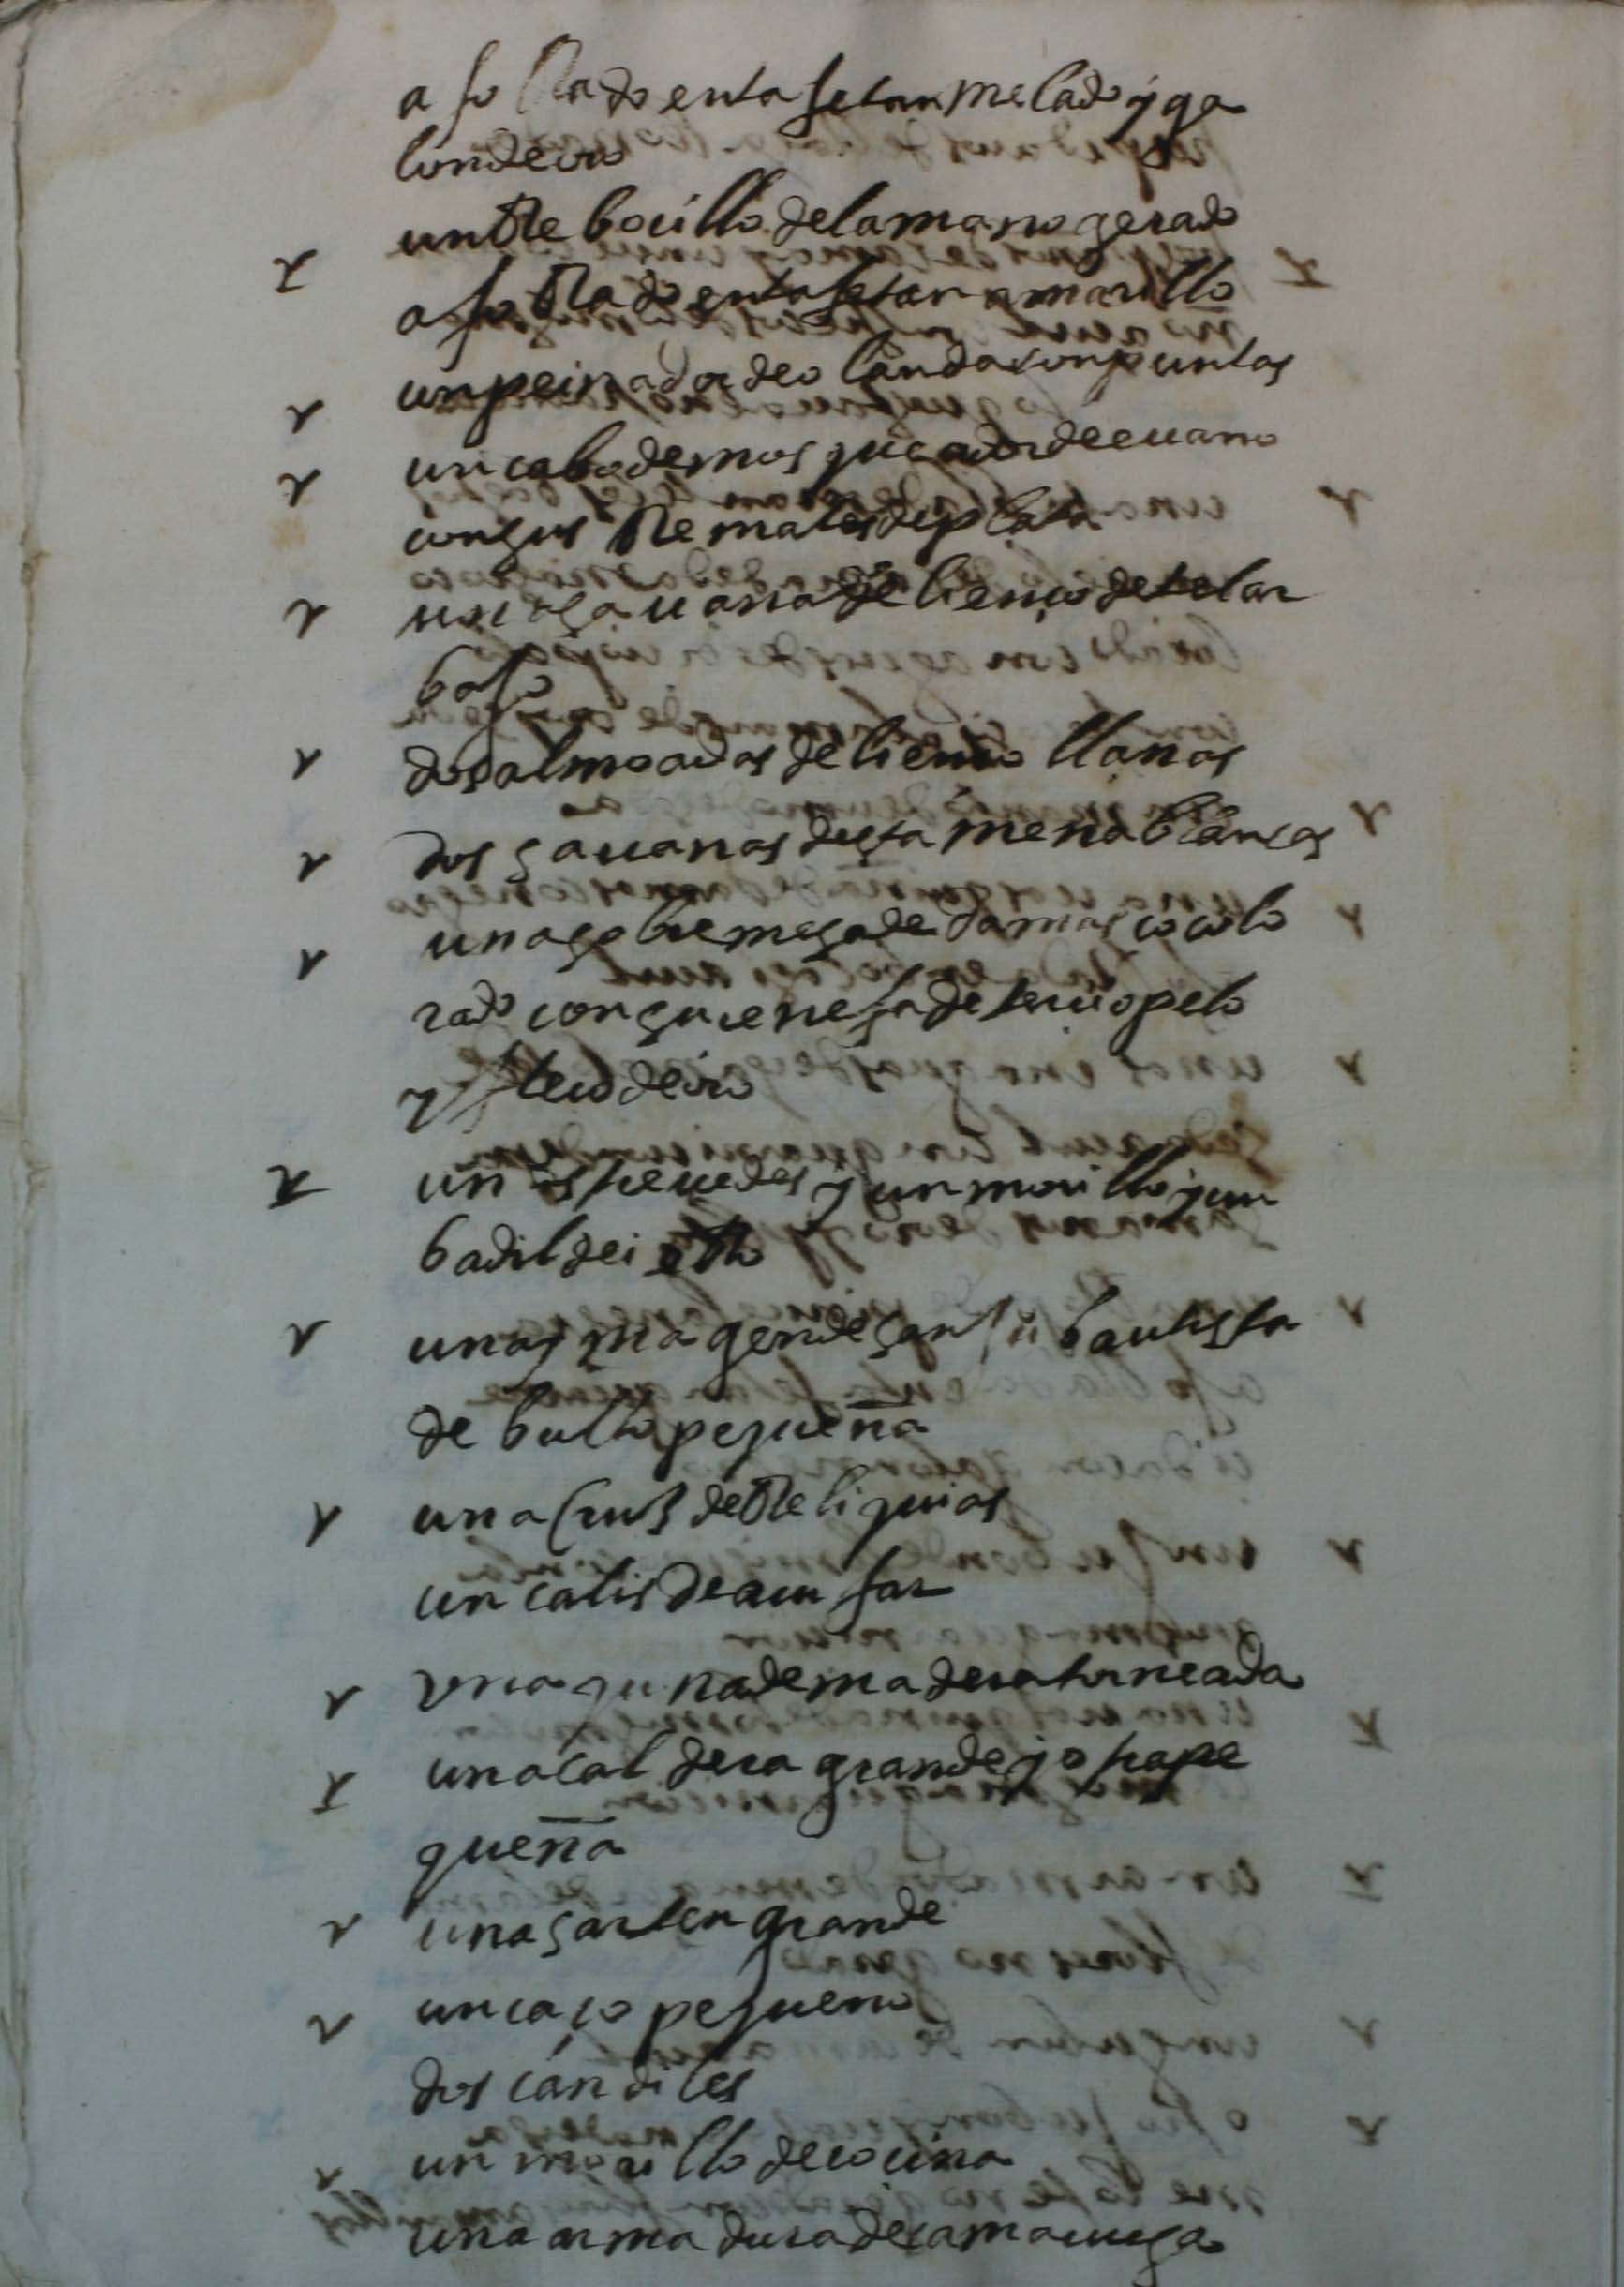 aforrado en tafetan melado y ga
lon de oro
un Rebocillo de la mano gerado
aforrado en tafetan amarillo
un peinador de olanda con puntas
un cabo de mosqueador de euano
con sus Remates de plata
una sauana de lienço de telar
baso
dos almoadas de lienço llanas
dos sauanas de estamena blancas
una sobremesa de damasco colo
rado con su cenefa de terciopelo
y fleco de oro
unas treuedes y un morillo y un
badil de ierro
una ymagen de san Ju bautista
de bulto pequeña
una Crus de Reliquias
un calis de açufar
vna cuna de madera torneada
una caldera grande y otra pe
queña
una sarten grande
un caço pequeno
dos candiles
un morillo de cocina
una armadura de cama uieja